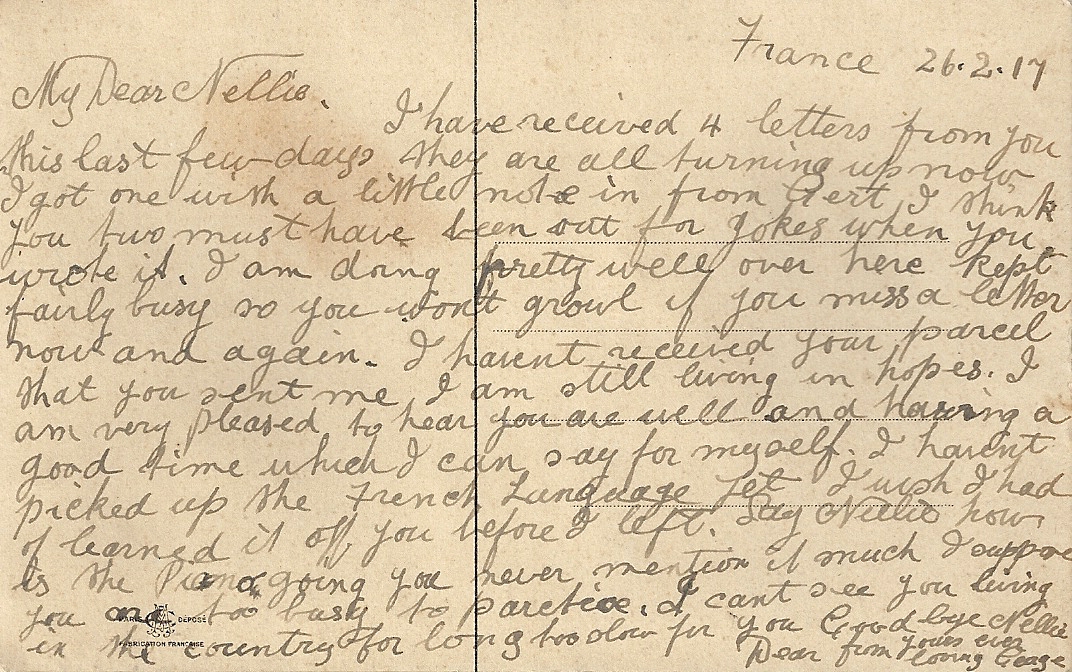 France 26.2.17
My Dear Nellie.
I have received 4 letters from you
this last few days they are all turning up now
I got one with a little note in from Gert I think
you two must have been out for jokes when you
wrote it. I am doing pretty well over here kept
fairly busy so you won't growl if you miss a letter
now and again. I havent received your parcel
that you sent me, I am still living in hopes. I
am very pleased to hear you are well and having a
good time which I can say for myself. I havent
picked up the French Language yet I wish I had
of learned it off you before I left. Say Nellie how
is the Piano going you never mention it much I suppose
you are to busy to parctice. I cant see you living
in the country for long too slow for you Good bye Nellie
Dear from yours ever
loving George
PARIS DÉPOSÉ
FABRICATION FRANÇAISE